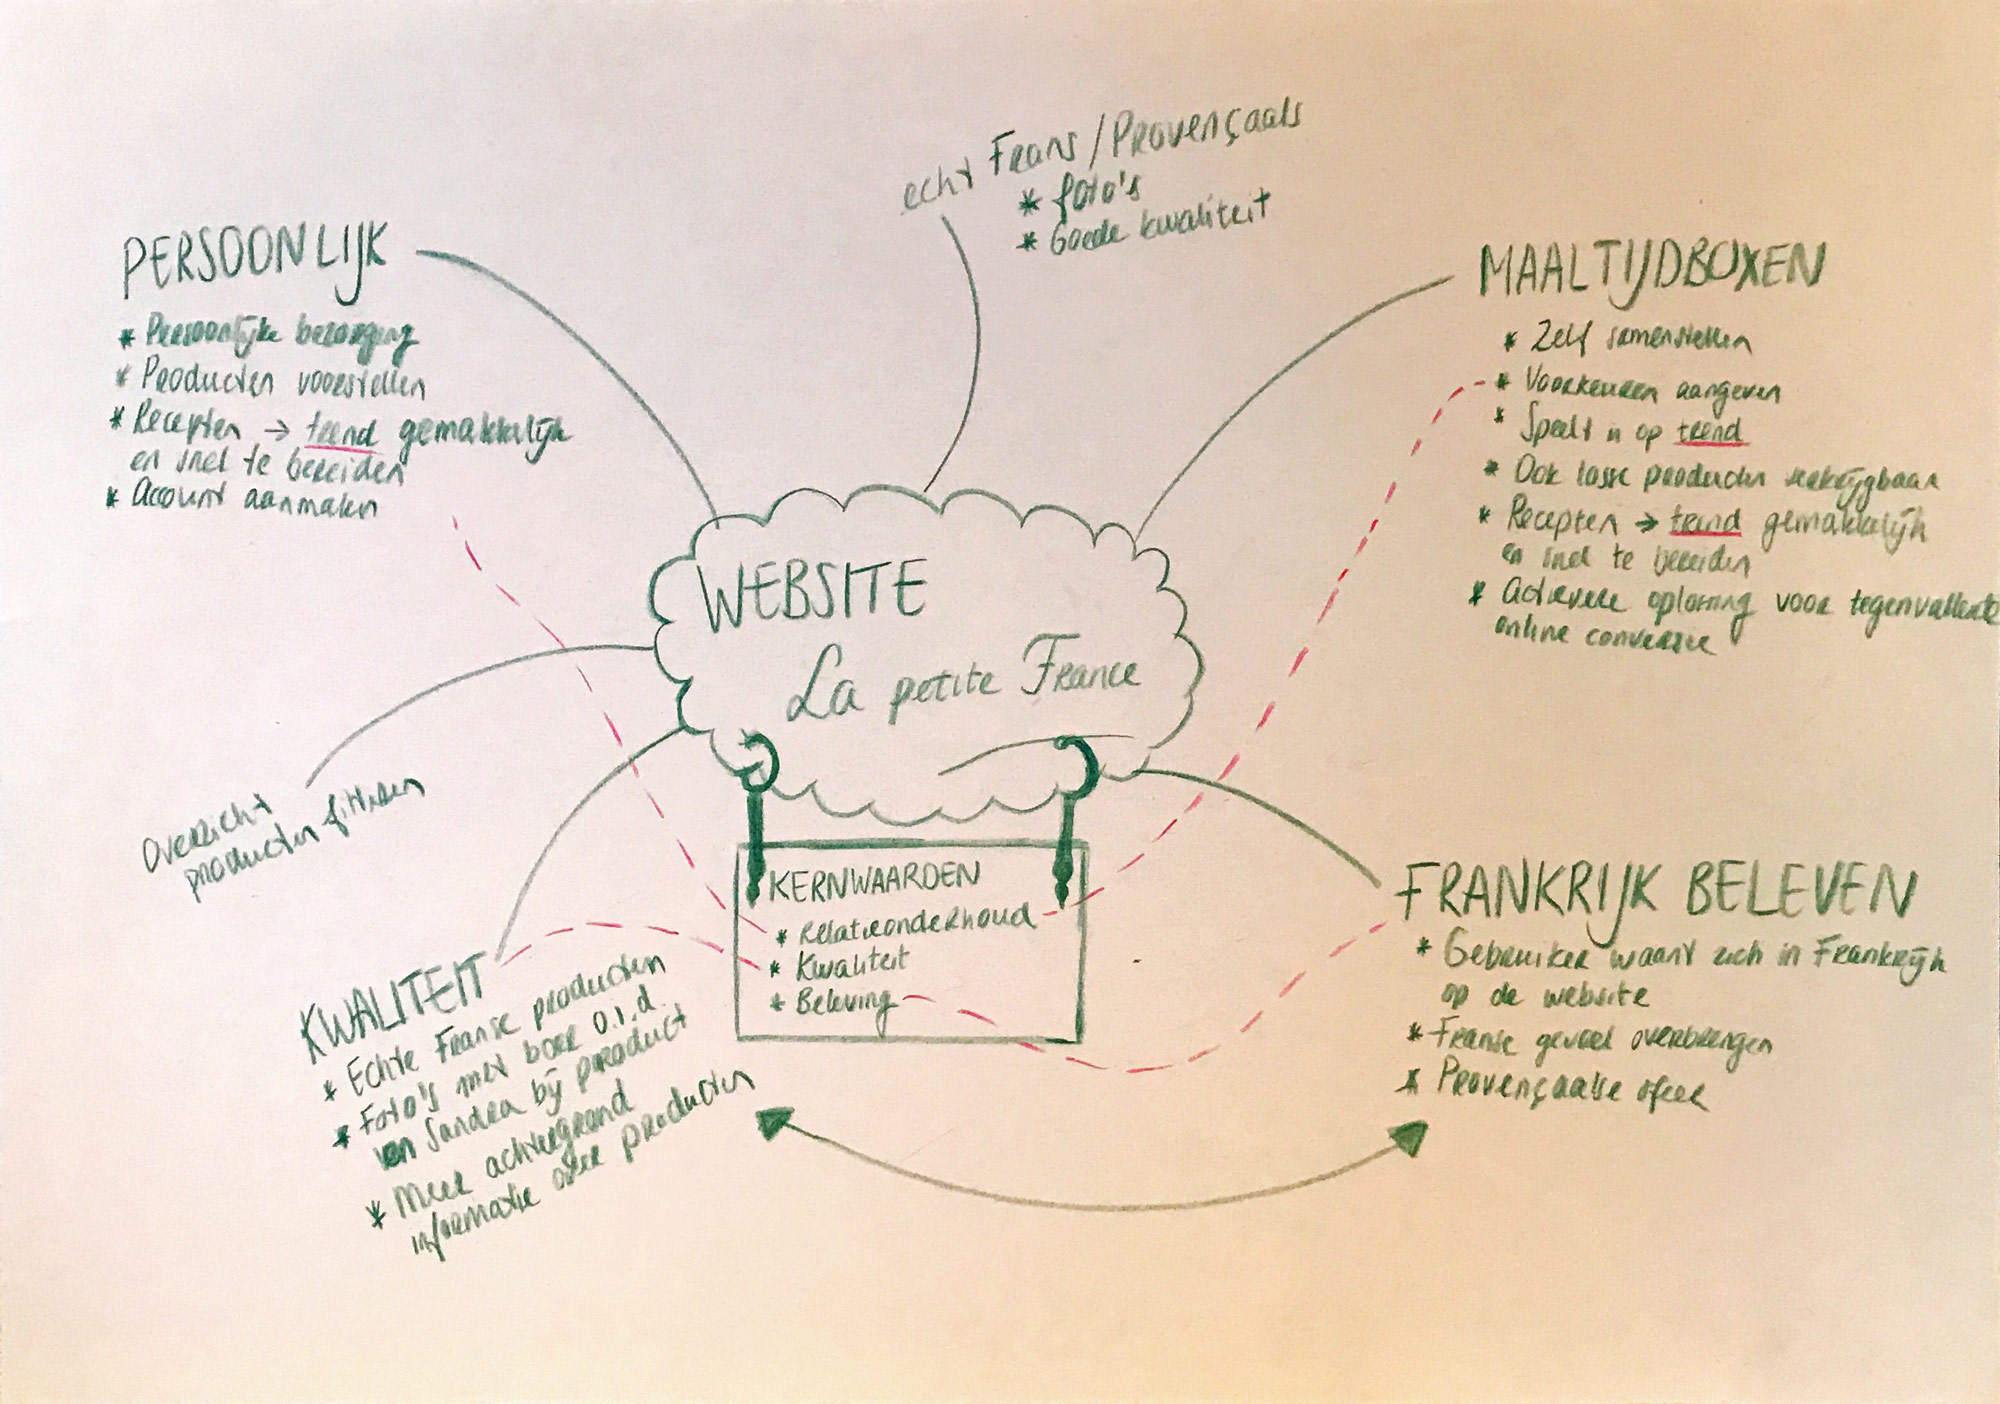 echt Frans/Provençaals
* foto's
* Goede kwaliteit
PERSOONLIJK
* Persoonlijke bezorging
* Producten voorstellen
* Recepten → trend gemakkelijk
en snel te bereiden
* Account aanmaken
MAALTIJDBOXEN
* Zelf samenstellen
* Voorkeuren aangeven
* Speelt in op trend
* Ook losse producten verkrijgbaar
* Recepten → trend gemakkelijk
en snel te bereiden
* Actievere oplossing voor tegenvallende
online conversie
WEBSITE
La petite France
Overzicht
producten filteren
KERNWAARDEN
* Relatieonderhoud
* Kwaliteit
* Beleving
KWALITEIT
* Echte Franse producten
* Foto's met boer o.i.d.
van Sandra bij product
* Meer achtergrond
informatie over producten
FRANKRIJK BELEVEN
* Gebruiker waant zich in Frankrijk
op de website
* Franse gevoel overbrengen
* Provençaalse sfeer